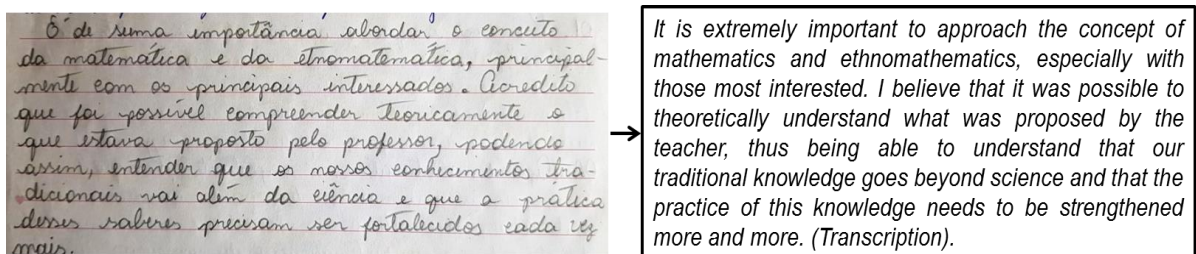 É de suma importância abordar o conceito
da matemática e da etnomatemática, principal-
mente com os principais interessados. Acredito
que foi possível compreender teoricamente o
que estava proposto pelo professor, podendo
assim, entender que os nossos conhecimentos tra-
dicionais vai além da ciência e que a prática
desses saberes precisam ser fortalecidos cada vez
mais.
It is extremely important to approach the concept of
mathematics and ethnomathematics, especially with
those most interested. I believe that it was possible to
theoretically understand what was proposed by the
teacher, thus being able to understand that our
traditional knowledge goes beyond science and that the
practice of this knowledge needs to be strengthened
more and more. (Transcription).